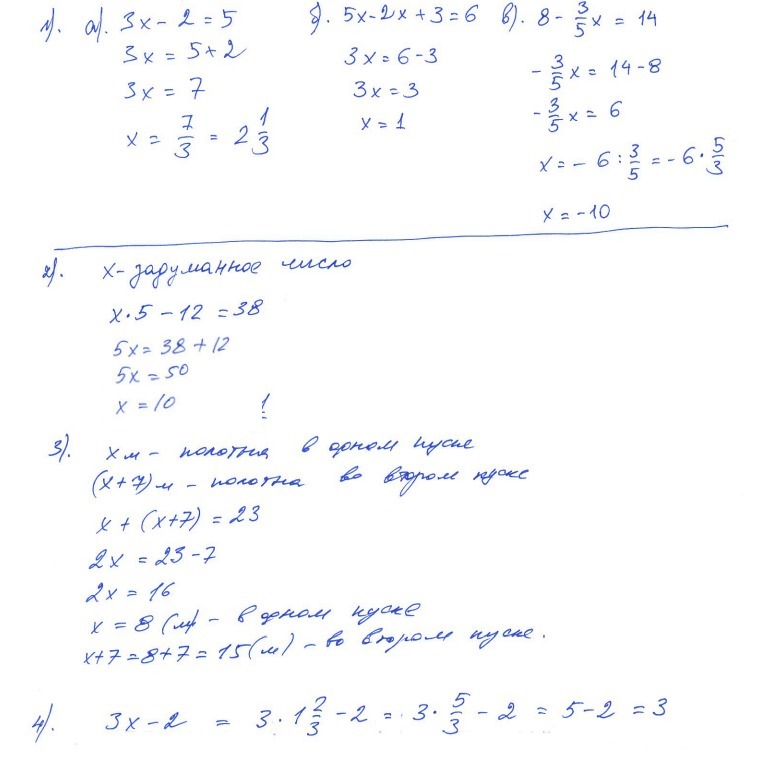 1). а). 3x - 2 = 5
3x = 5+2
3x = 7
x = 7/3 = 2 1/3
б). 5x-2x+3=6
3x = 6-3
3x = 3
x = 1
в). 8 - 3/5 x = 14
- 3/5 x = 14-8
- 3/5 x = 6
x = - 6 : 3/5 = - 6 · 5/3
x = -10
2). x - задуманное число
x · 5 - 12 = 38
5x = 38 + 12
5x = 50
x = 10 !
3). x м - полотна в одном куске
(x+7) м - полотна во втором куске
x + (x+7) = 23
2x = 23-7
2x = 16
x = 8 (м) - в одном куске
x+7 = 8+7 = 15 (м) - во втором куске.
4). 3x-2 = 3 · 1 2/3 - 2 = 3 · 5/3 - 2 = 5-2 = 3